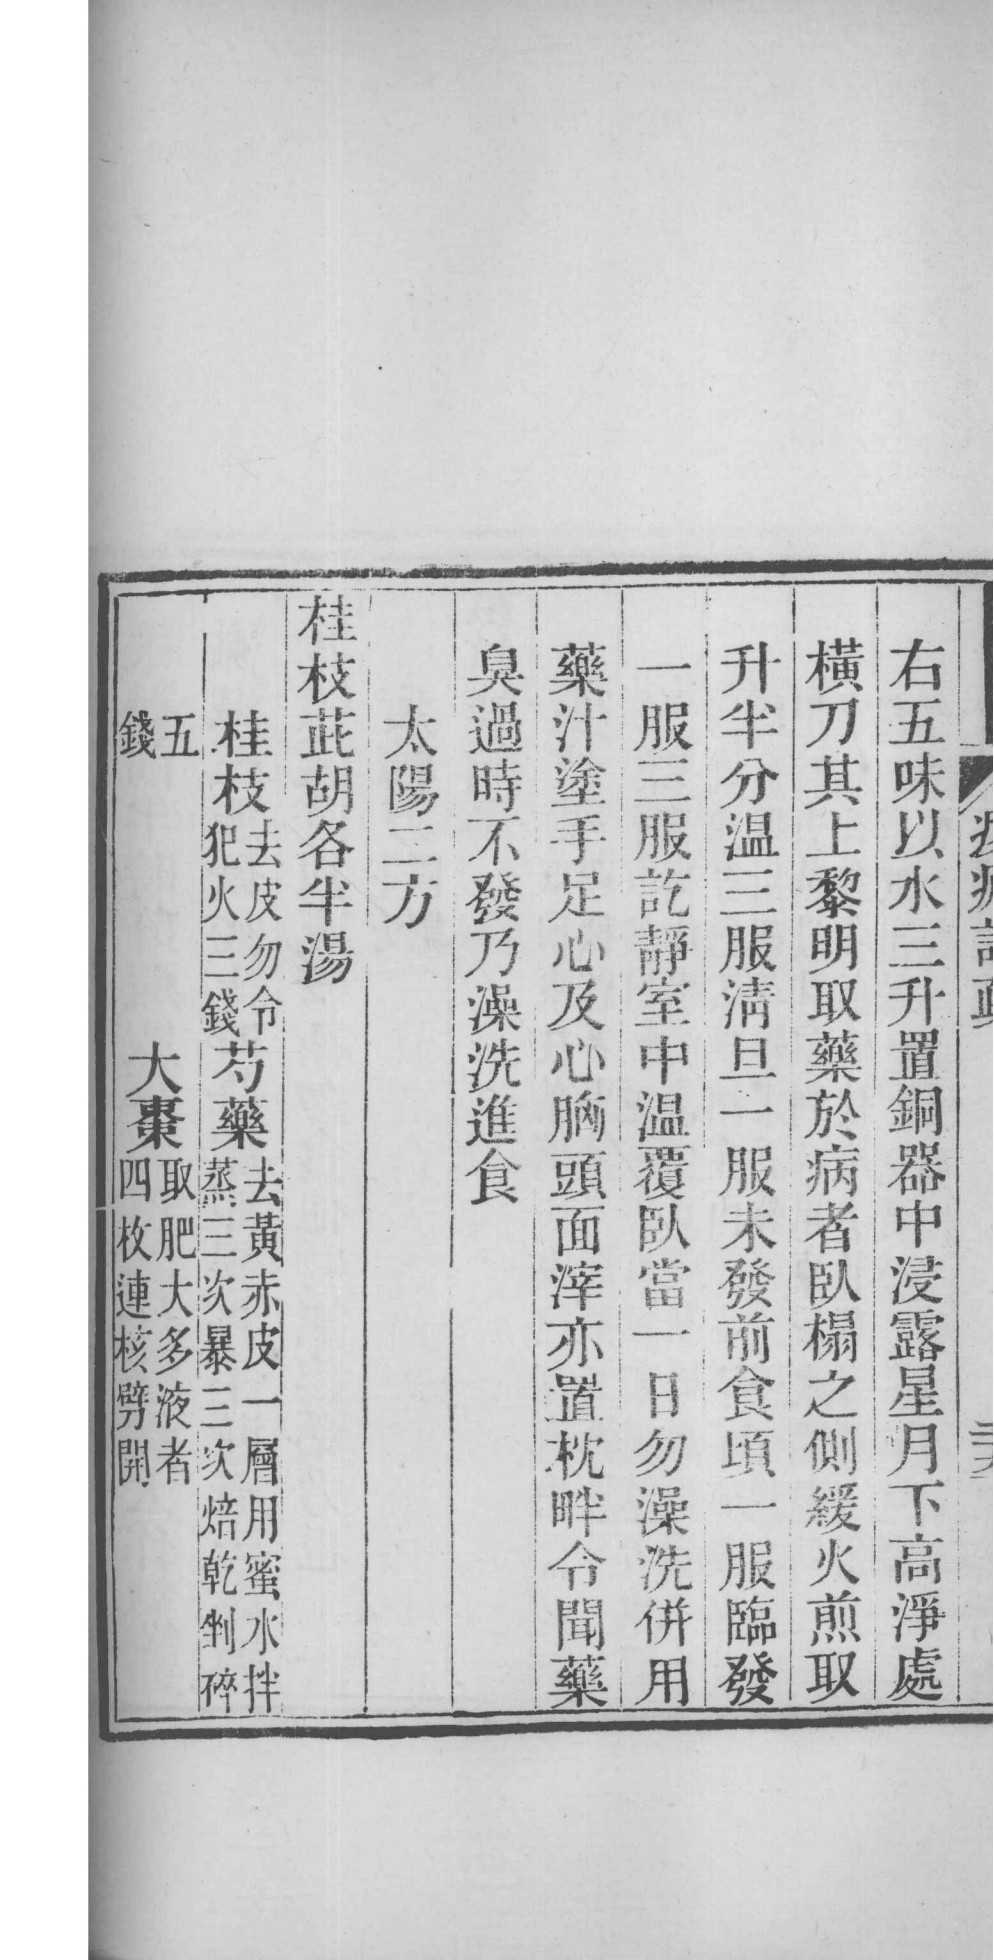 右五味以水三升置銅器中浸露星月下高淨處
橫刀其上黎明取藥於病者臥榻之側緩火煎取
升半分温三服淸旦一服未發前食頃一服臨發
一服三服訖靜室中温覆臥當一日勿澡洗併用
藥汁塗手足心及心胸頭面滓亦置枕畔令聞藥
臭過時不發乃澡洗進食
太陽二方
桂枝茈胡各半湯
桂枝去皮勿令犯火三錢芍藥去黃赤皮一層用蜜水拌蒸三次暴三次焙乾剉碎
五錢大棗取肥大多液者四枚連核劈開